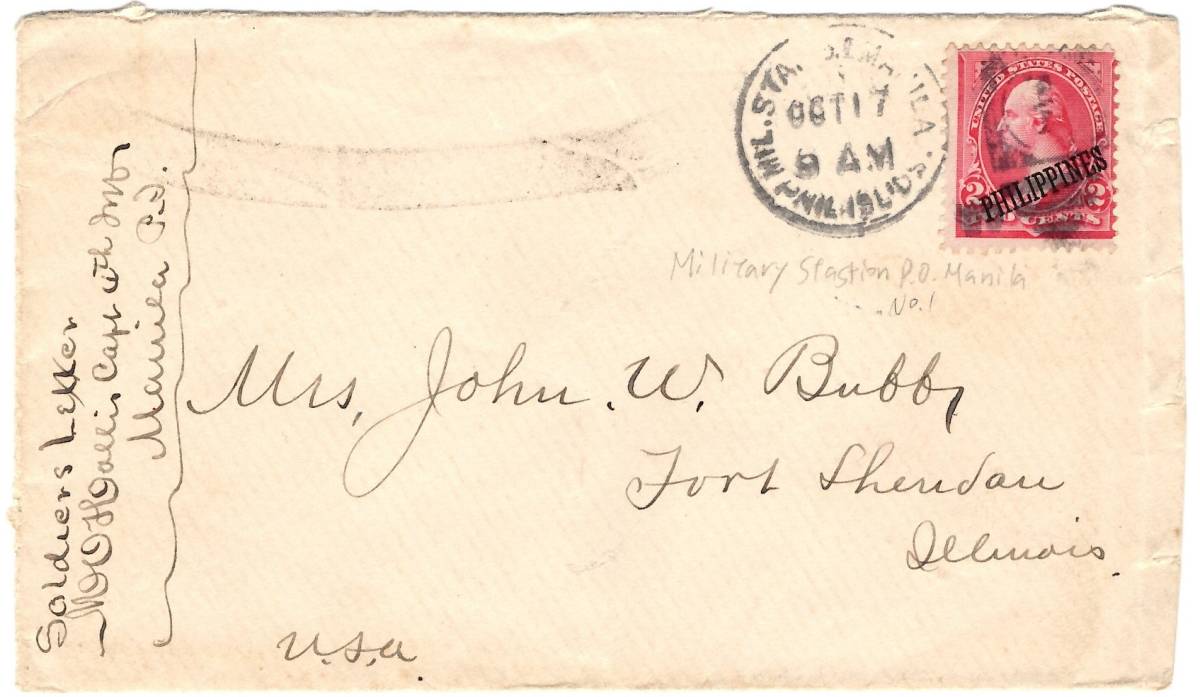 MIL. STA. NO.1 MANILA
OCT 17
9 AM
PHIL. ISL'DS.
UNITED STATES POSTAGE
PHILIPPINES
2 CENTS 2
Military Stastion P.O. Manila
No. 1
Mrs. John W. Bubb
Fort Sheridan
Illinois.
U.S.A
Soldiers Letter
Hollis Capt 4th Inf
Manila P.I.